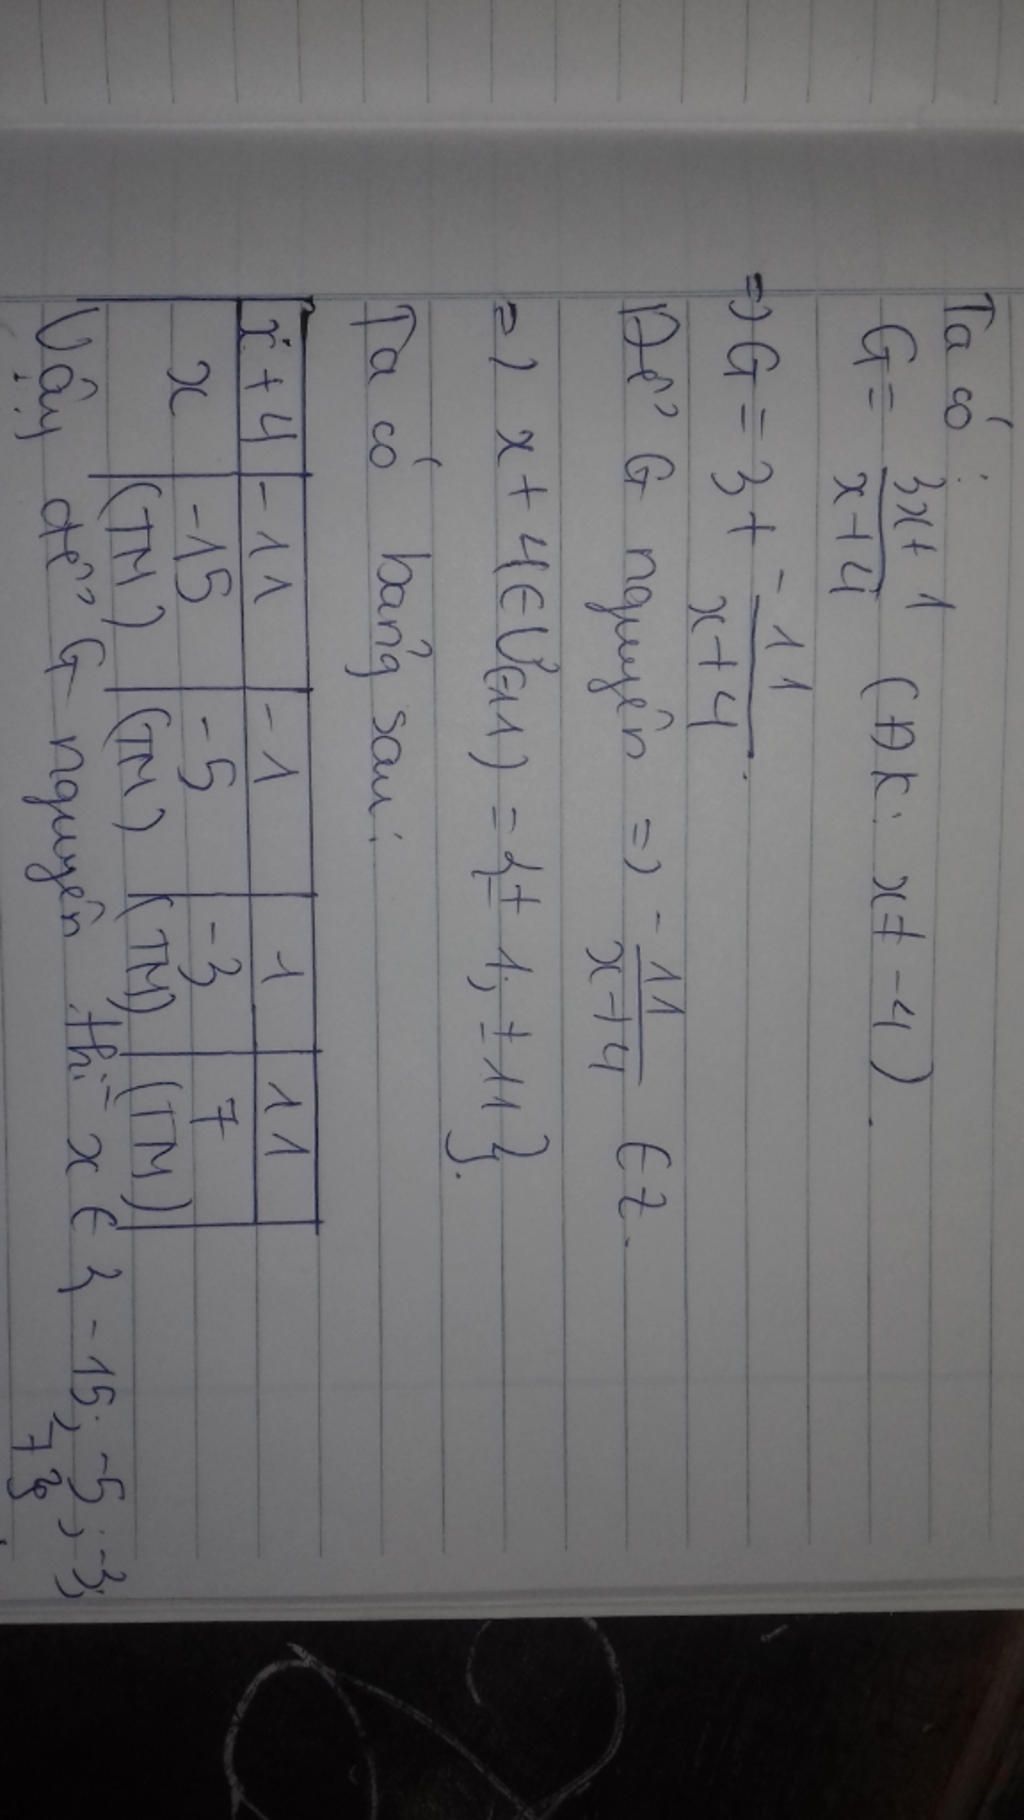 Ta có:
G = 3x+1/x+4 (ĐK: x ≠ -4).
=> G = 3 + -11/x+4.
Để G nguyên => -11/x+4 ∈ Z.
=> x + 4 ∈ Ư(-11) = {± 1; ± 11}.
Ta có bảng sau:
x+4 | -11 | -1 | 1 | 11
x | -15 | -5 | -3 | 7
(TM) | (TM) | (TM) | (TM)
Vậy để G nguyên thì x ∈ {-15; -5; -3;
7}